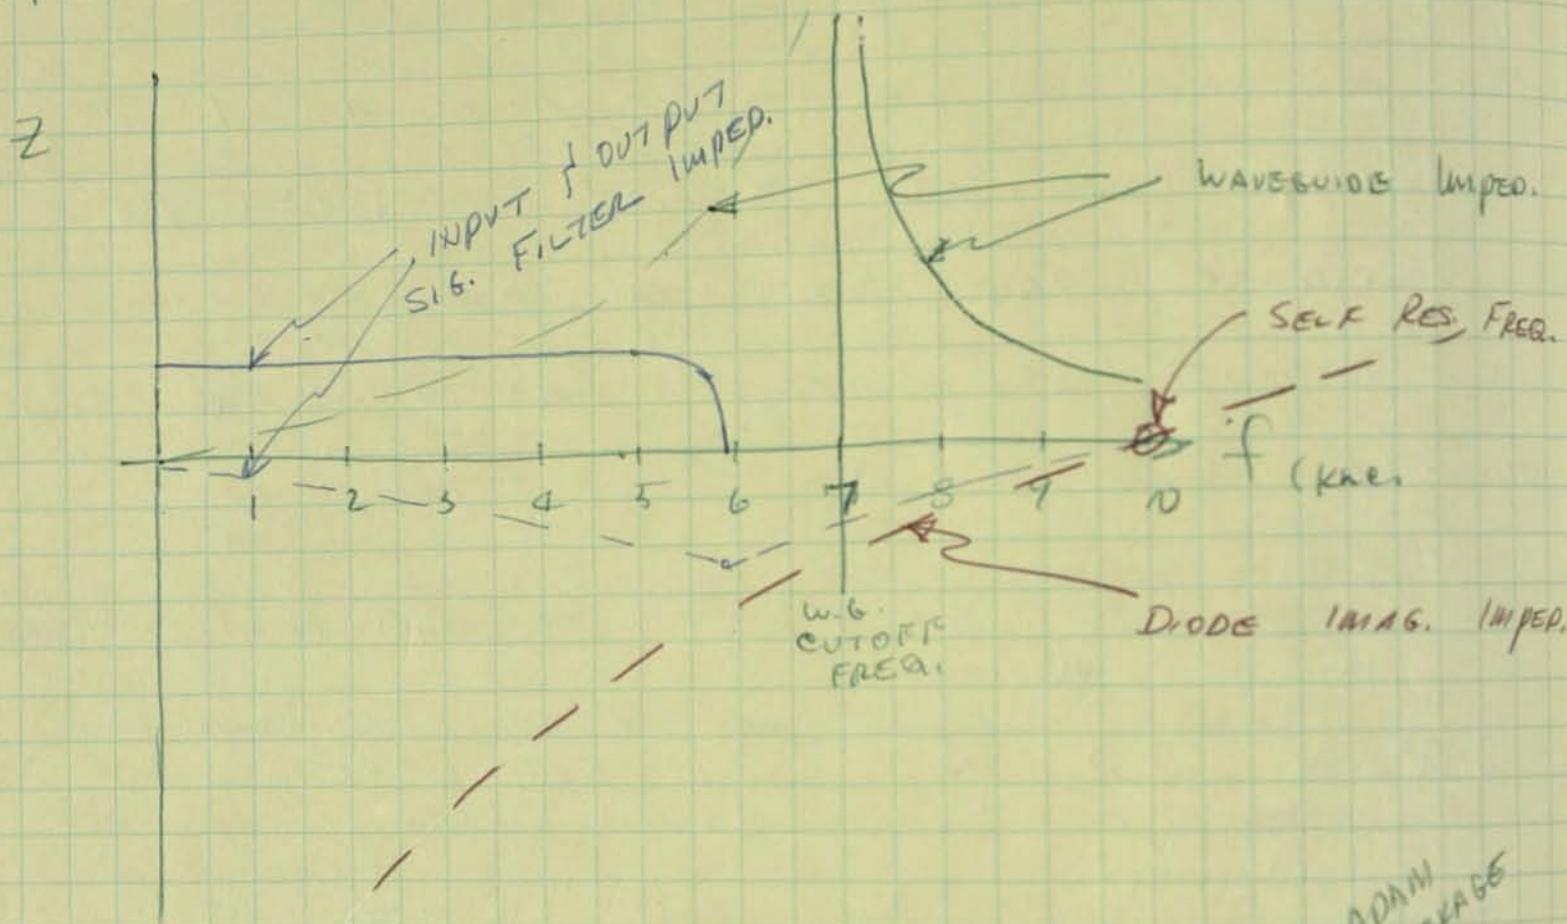 Z
INPUT & OUTPUT
SIG. FILTER IMPED.
WAVEGUIDE IMPED.
SELF RES. FREQ.
f (kmc.
1 2 3 4 5 6 7 8 9 10
W.G.
CUTOFF
FREQ.
DIODE IMAG. IMPED.
ADAM